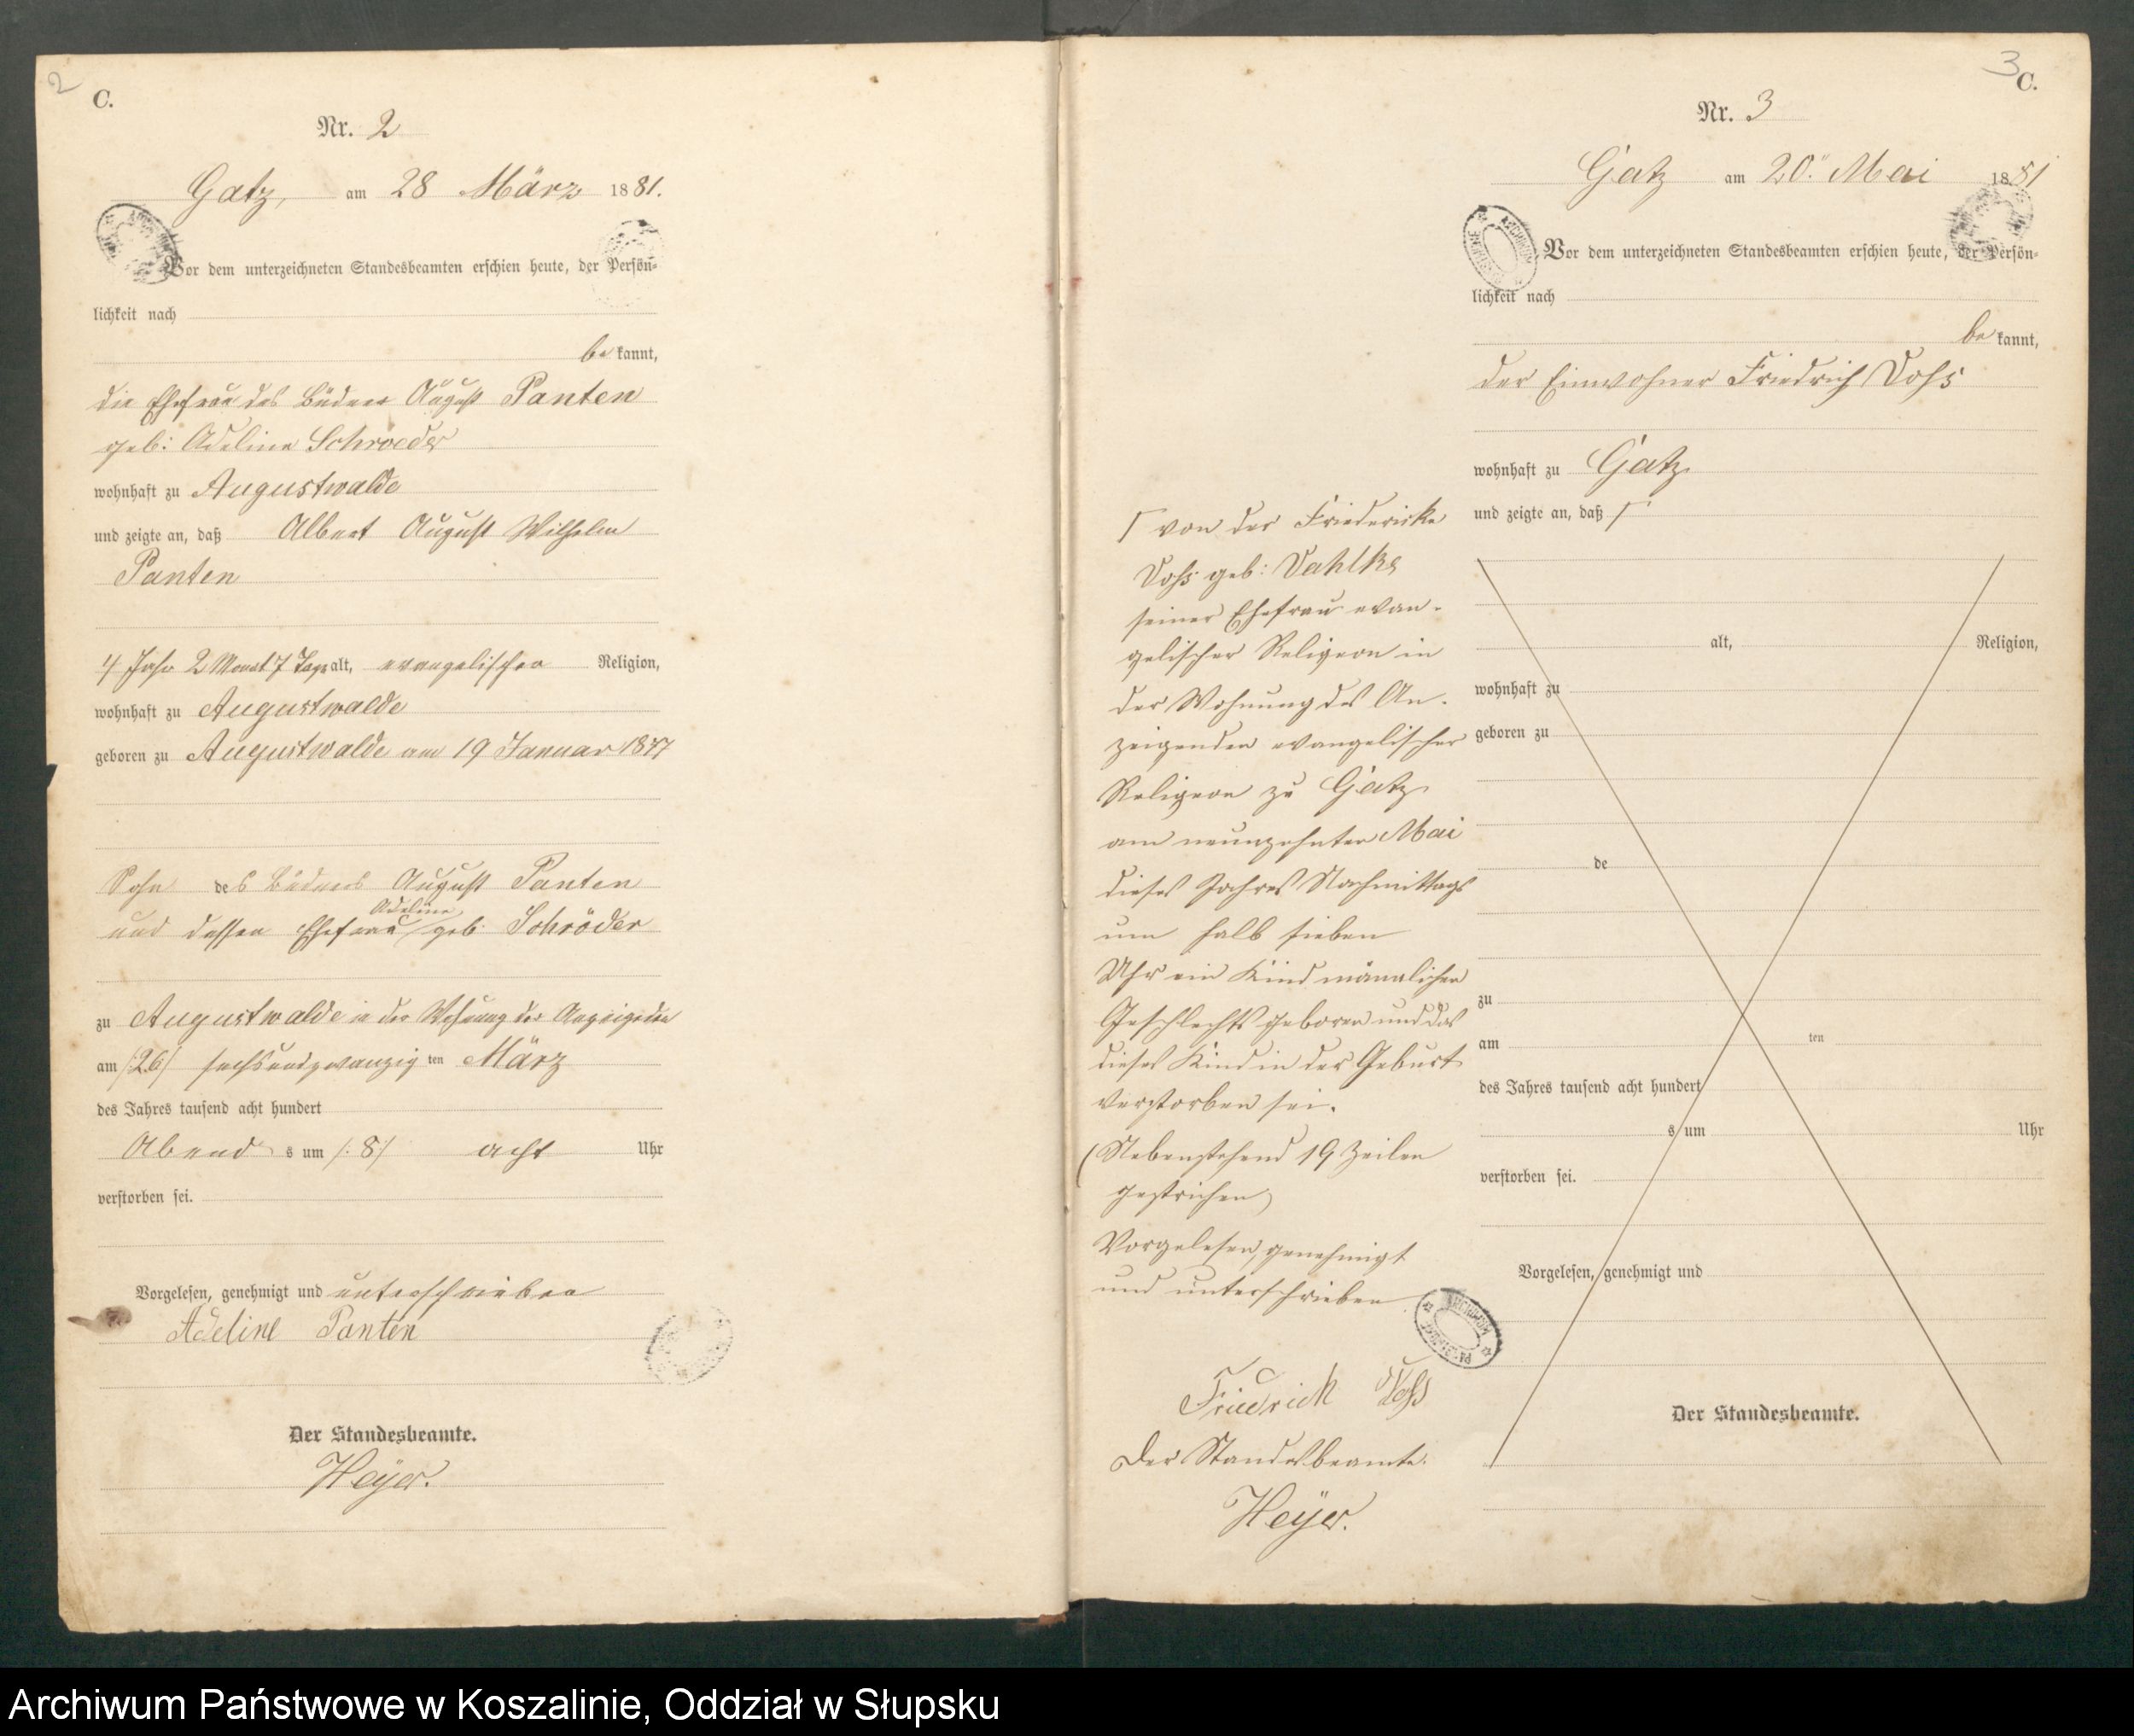 2
C.
Nr. 2
Gatz, am 28 März 1881.
Vor dem unterzeichneten Standesbeamten erschien heute, der Persön-
lichkeit nach
bekannt,
die Ehefrau des Büdner August Panten
geb: Adeline Schroeder
wohnhaft zu Augustwalde
und zeigte an, daß Albert August Wilhelm
Panten
4 Jahr 2 Monat 7 Tage alt, evangelischer Religion,
wohnhaft zu Augustwalde
geboren zu Augustwalde am 19 Januar 1877
Sohn des Büdners August Panten
Adeline
und dessen Ehefrau geb. Schröder
zu Augustwalde in der Wohnung der Anzeigenden
am /:26:/ sechsundzwanzigten März
des Jahres tausend acht hundert
Abends um /:8:/ acht Uhr
verstorben sei.
Vorgelesen, genehmigt und unterschrieben
Adeline Panten
Der Standesbeamte.
Heyer.
3
C.
Nr. 3
Gatz am 20. Mai 1881
Vor dem unterzeichneten Standesbeamten erschien heute, der Persön-
lichkeit nach
bekannt,
der Einwohner Friedrich Voß
wohnhaft zu Gatz
und zeigte an, daß Γ
Γ von der Friedericke
Voß geb: Vahlke
seiner Ehefrau evan-
gelischer Religion in
der Wohnung des An-
zeigenden evangelischer
Religion zu Gatz
am neunzehnten Mai
dieses Jahres Nachmittags
um halb sieben
Uhr ein Kind männlichen
Geschlechts geboren und das
dieses Kind in der Geburt
verstorben sei.
(Nebenstehend 19 Zeilen
gestrichen)
Vorgelesen, genehmigt
und unterschrieben
Friedrich Voß
Der Standesbeamte.
Heyer.
alt, Religion,
wohnhaft zu
geboren zu
de
zu
am ten
des Jahres tausend acht hundert
s um Uhr
verstorben sei.
Vorgelesen, genehmigt und
Der Standesbeamte.
Archiwum Państwowe w Koszalinie, Oddział w Słupsku